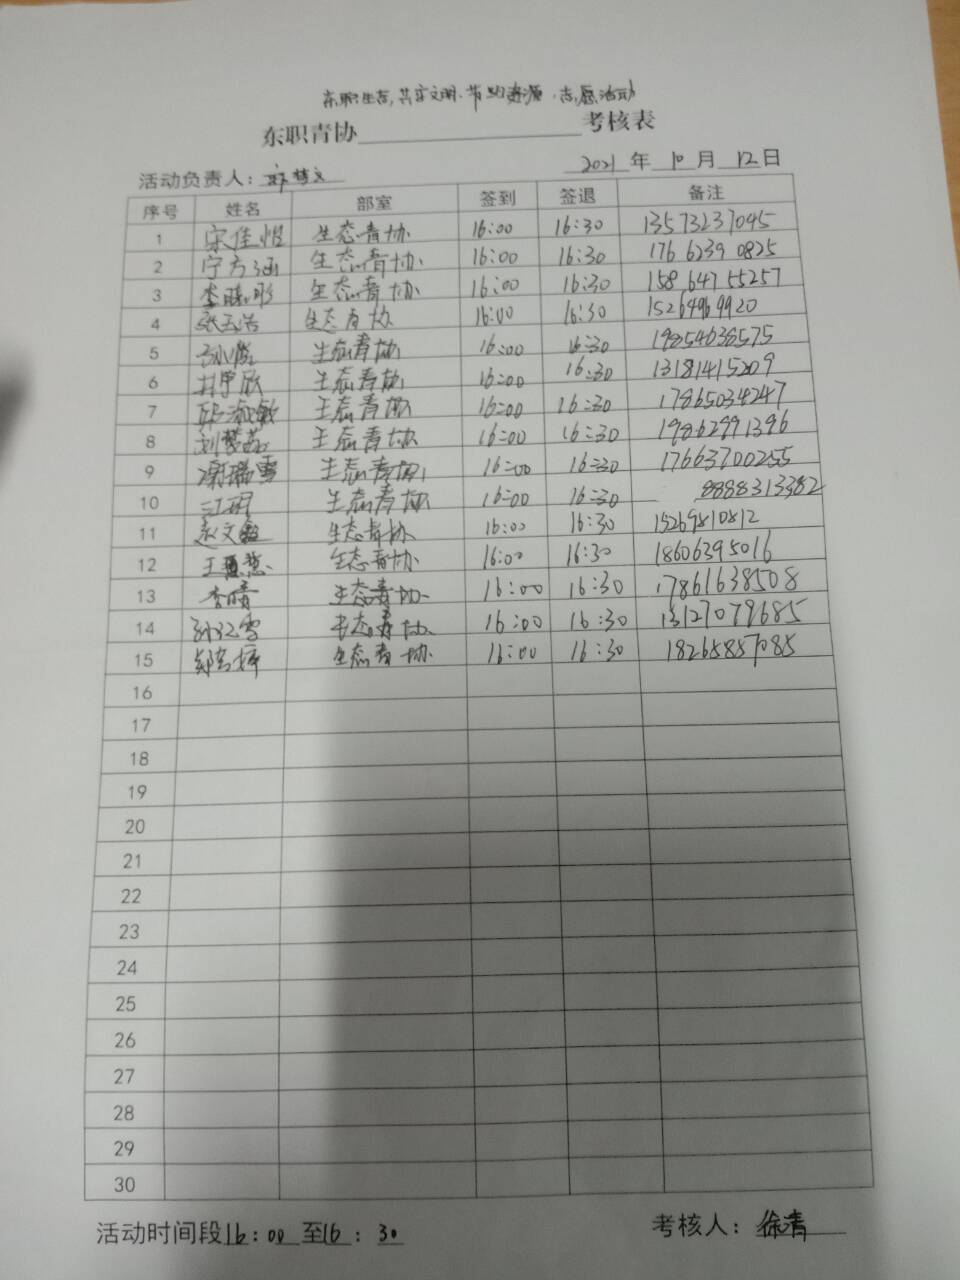 东职生态,共享文明.节约资源.志愿活动
东职青协 考核表
活动负责人: 2021 年 10 月 12 日
序号 姓名 部室 签到 签退 备注
1 宋佳怡 生态青协 16:00 16:30 13573237045
2 宁方涵 生态青协 16:00 16:30 176 6239 0825
3 李晓彤 生态青协 16:00 16:30 158 647 55257
4 张玉洁 生态青协 16:00 16:30 15264969920
5 生态青协 16:00 16:30 19854638575
6 生态青协 16:00 16:30 13181415209
7 邱淑敏 生态青协 16:00 16:30 17865034247
8 生态青协 16:00 16:30 19862991396
9 谢瑞雪 生态青协 16:00 16:30 17663700255
10 江玥 生态青协 16:00 16:30 8888313382
11 赵文 生态青协 16:00 16:30 15269810812
12 王慧慧 生态青协 16:00 16:30 18606395016
13 李晴 生态青协 16:00 16:30 17861638508
14 孙江雪 生态青协 16:00 16:30 13127079685
15 生态青协 16:00 16:30 18265857085
16
17
18
19
20
21
22
23
24
25
26
27
28
29
30
活动时间段16:00至16:30 考核人: 徐青